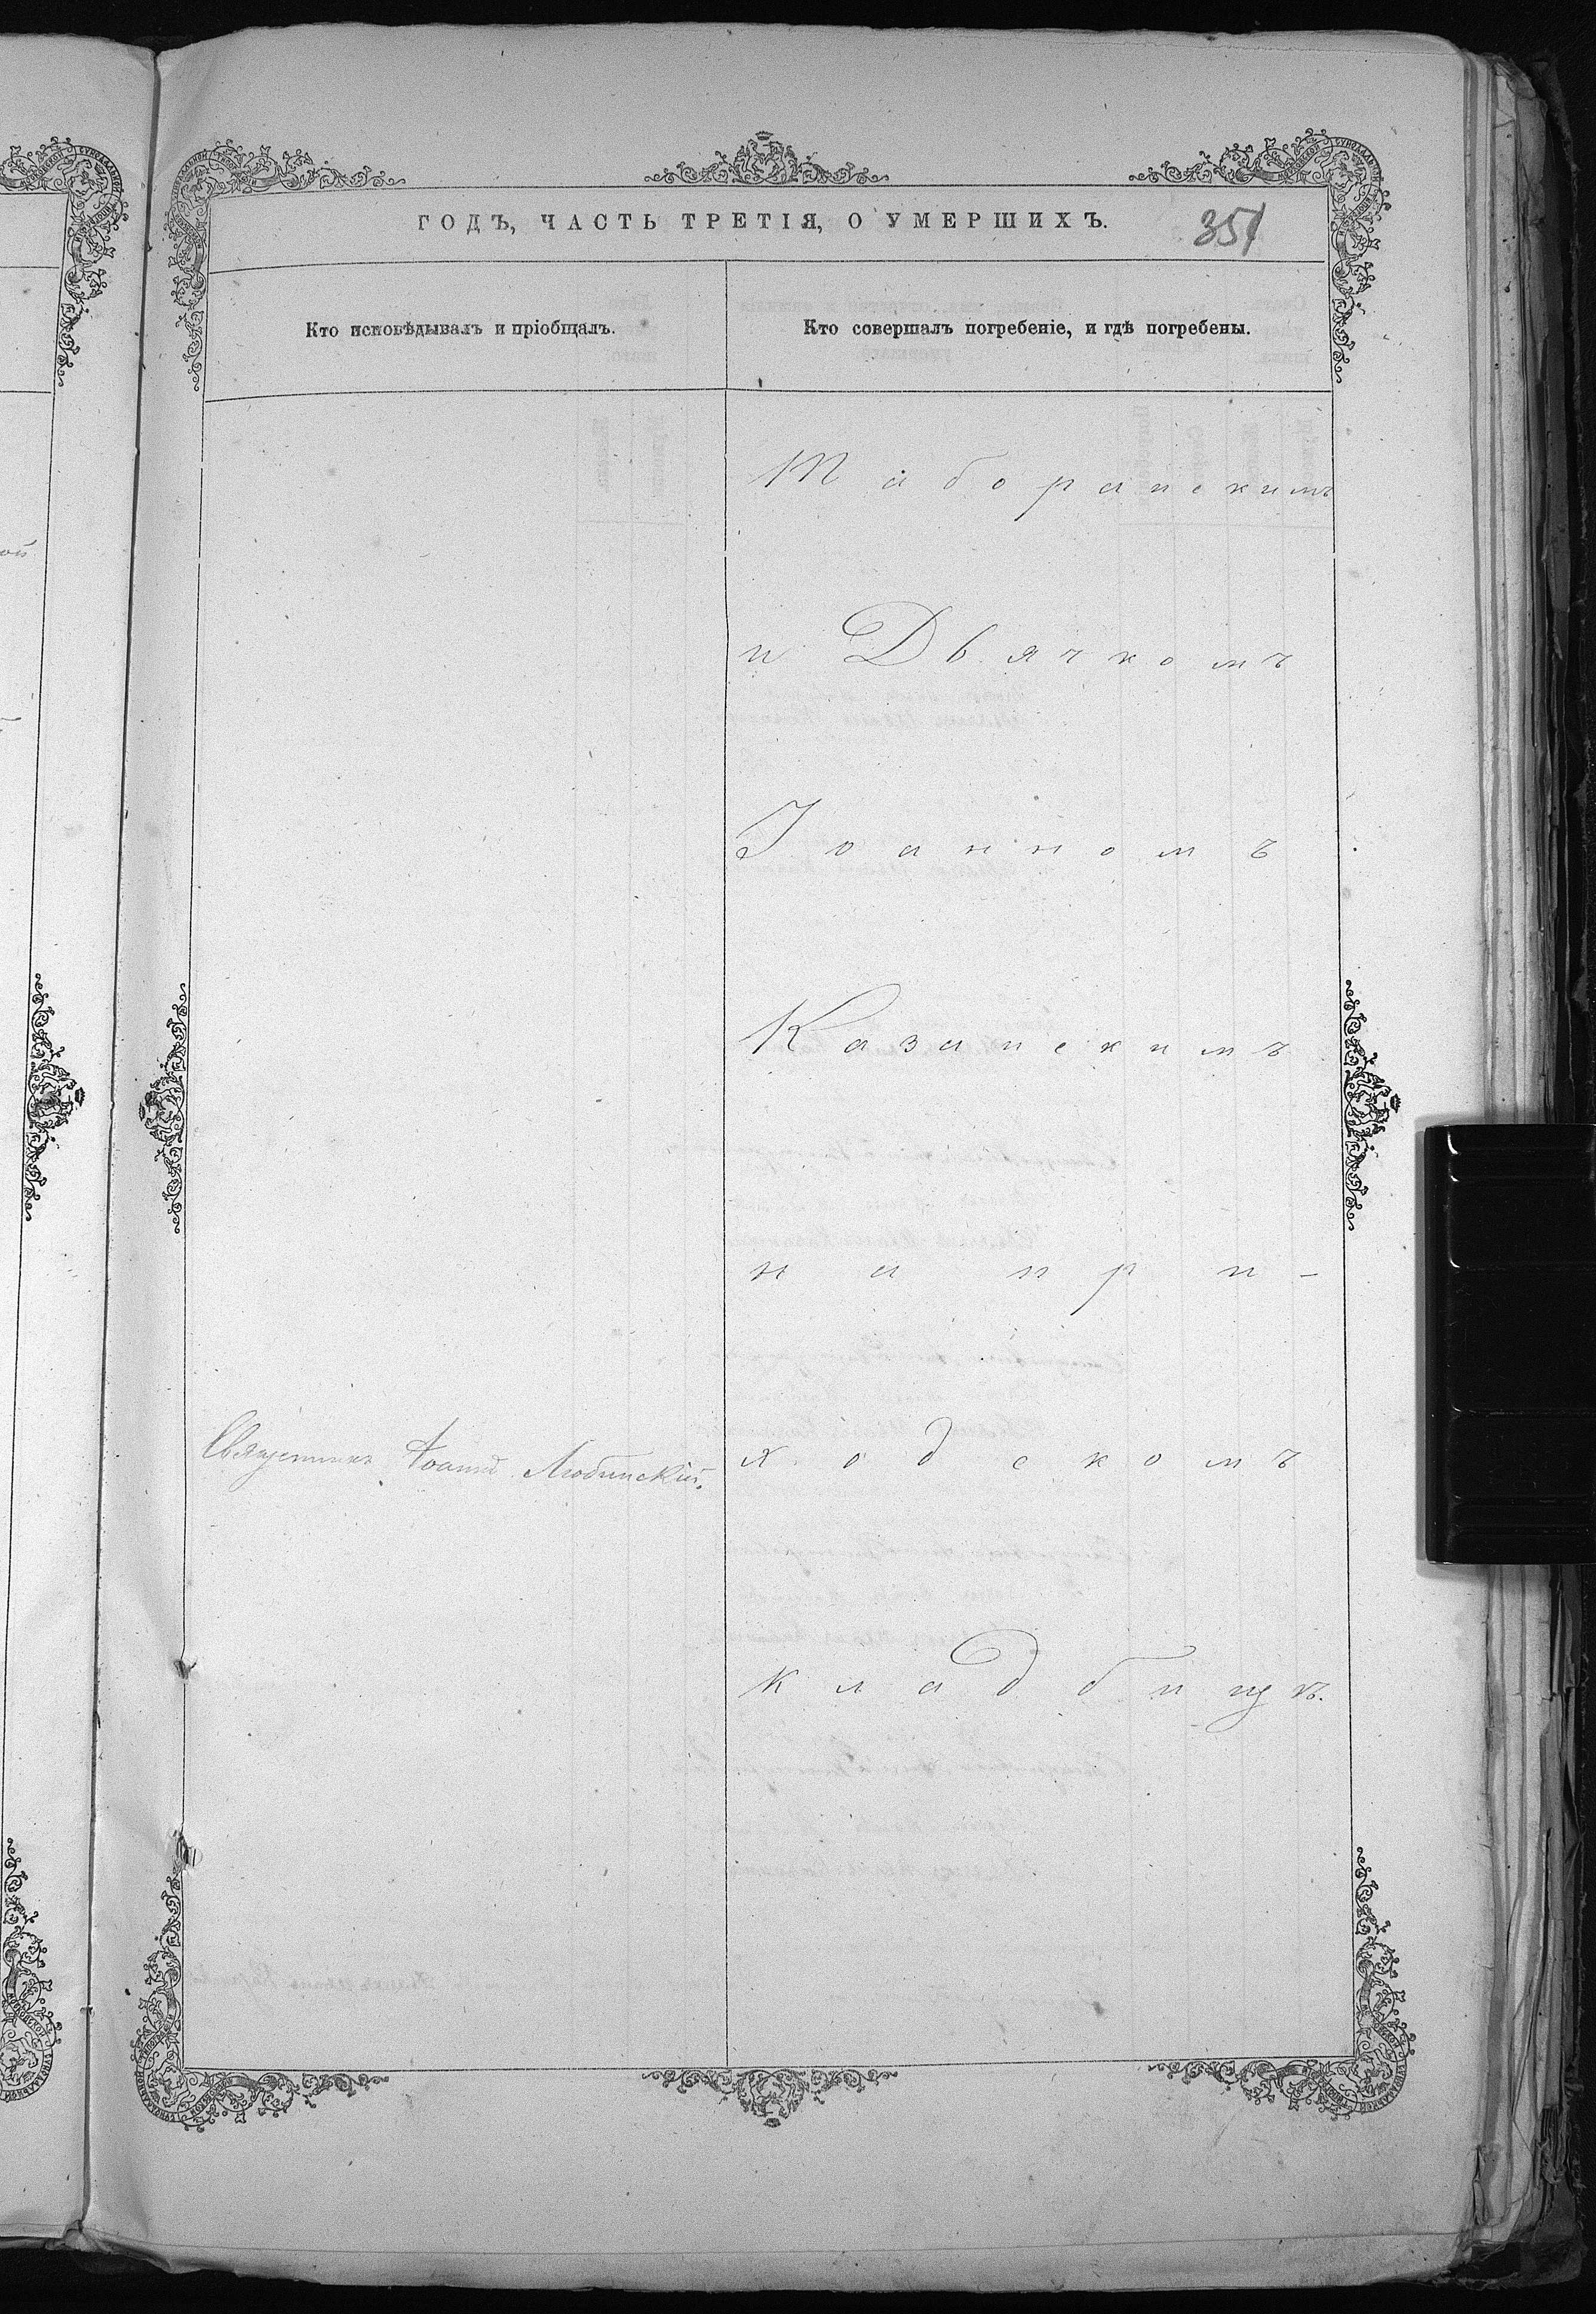 ГОДЪ, ЧАСТЬ ТРЕТІЯ, О УМЕРШИХЪ.
351
Кто исповѣдывалъ и пріобщалъ.
Кто совершалъ погребеніе, и гдѣ погребены.
Таборанскимъ
и Дьячкомъ
Іоанномъ
Казанскимъ
на при-
Священникъ Іоаннъ Любинскій.
ходскомъ
кладбищѣ.